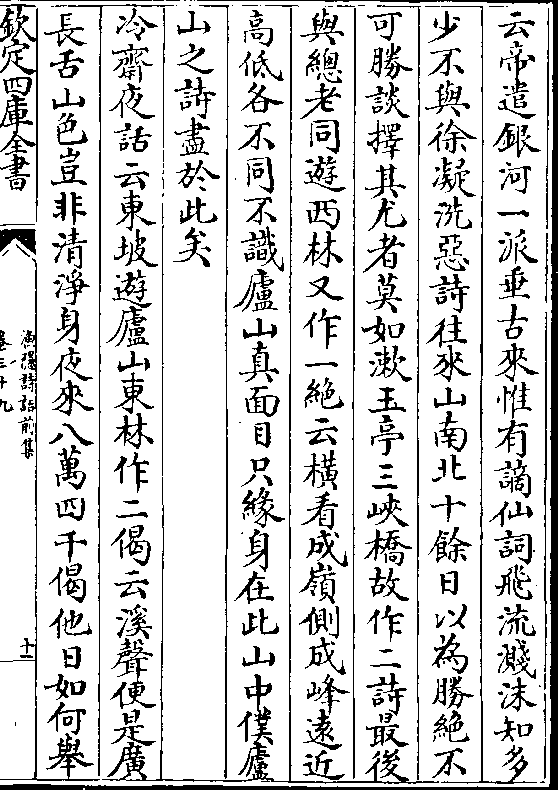 云帝遣銀河一派垂古來惟有謫仙詞飛流濺沫知多
少不與徐凝洗惡詩往來山南北十餘日以為勝絕不
可勝談擇其尤者莫如漱玉亭三峽橋故作二詩最後
與總老同遊西林又作一絕云橫看成嶺側成峰遠近
高低各不同不識廬山真面目只緣身在此山中僕廬
山之詩盡於此矣
冷齋夜話云東坡遊廬山東林作二偈云溪聲便是廣
長舌山色豈非清淨身夜來八萬四千偈他日如何舉
欽定四庫全書
漁隱詩話前集
卷三十九
十一